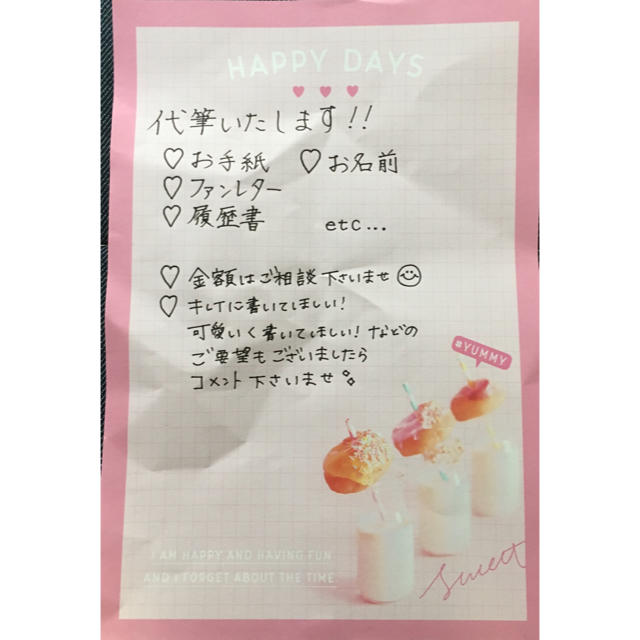 HAPPY DAYS
代筆いたします!!
♡お手紙 ♡お名前
♡ファンレター
♡履歴書 etc...
♡金額はご相談下さいませ
♡キレイに書いてほしい!
可愛いく書いてほしい!などの
ご要望もございましたら
コメント下さいませ
#YUMMY
I AM HAPPY AND HAVING FUN
AND I FORGET ABOUT THE TIME
Sweet